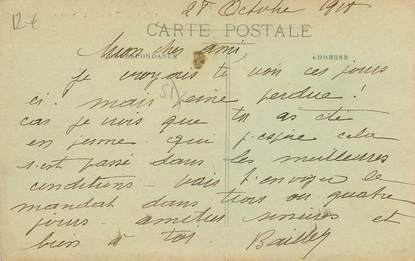 12€
28 Octobre 1918
CARTE POSTALE
CORRESPONDANCE
ADRESSE
Mon cher ami,
je croyais te voir ces jours
ci! mais peine perdue!
51
car je vois que tu as été
en perme qui j'espère cela
s'est passé dans les meilleures
conditions - vais t'envoyer le
mandat dans trois ou quatre
jours - amitiés sincères et
bien à toi
Bailly